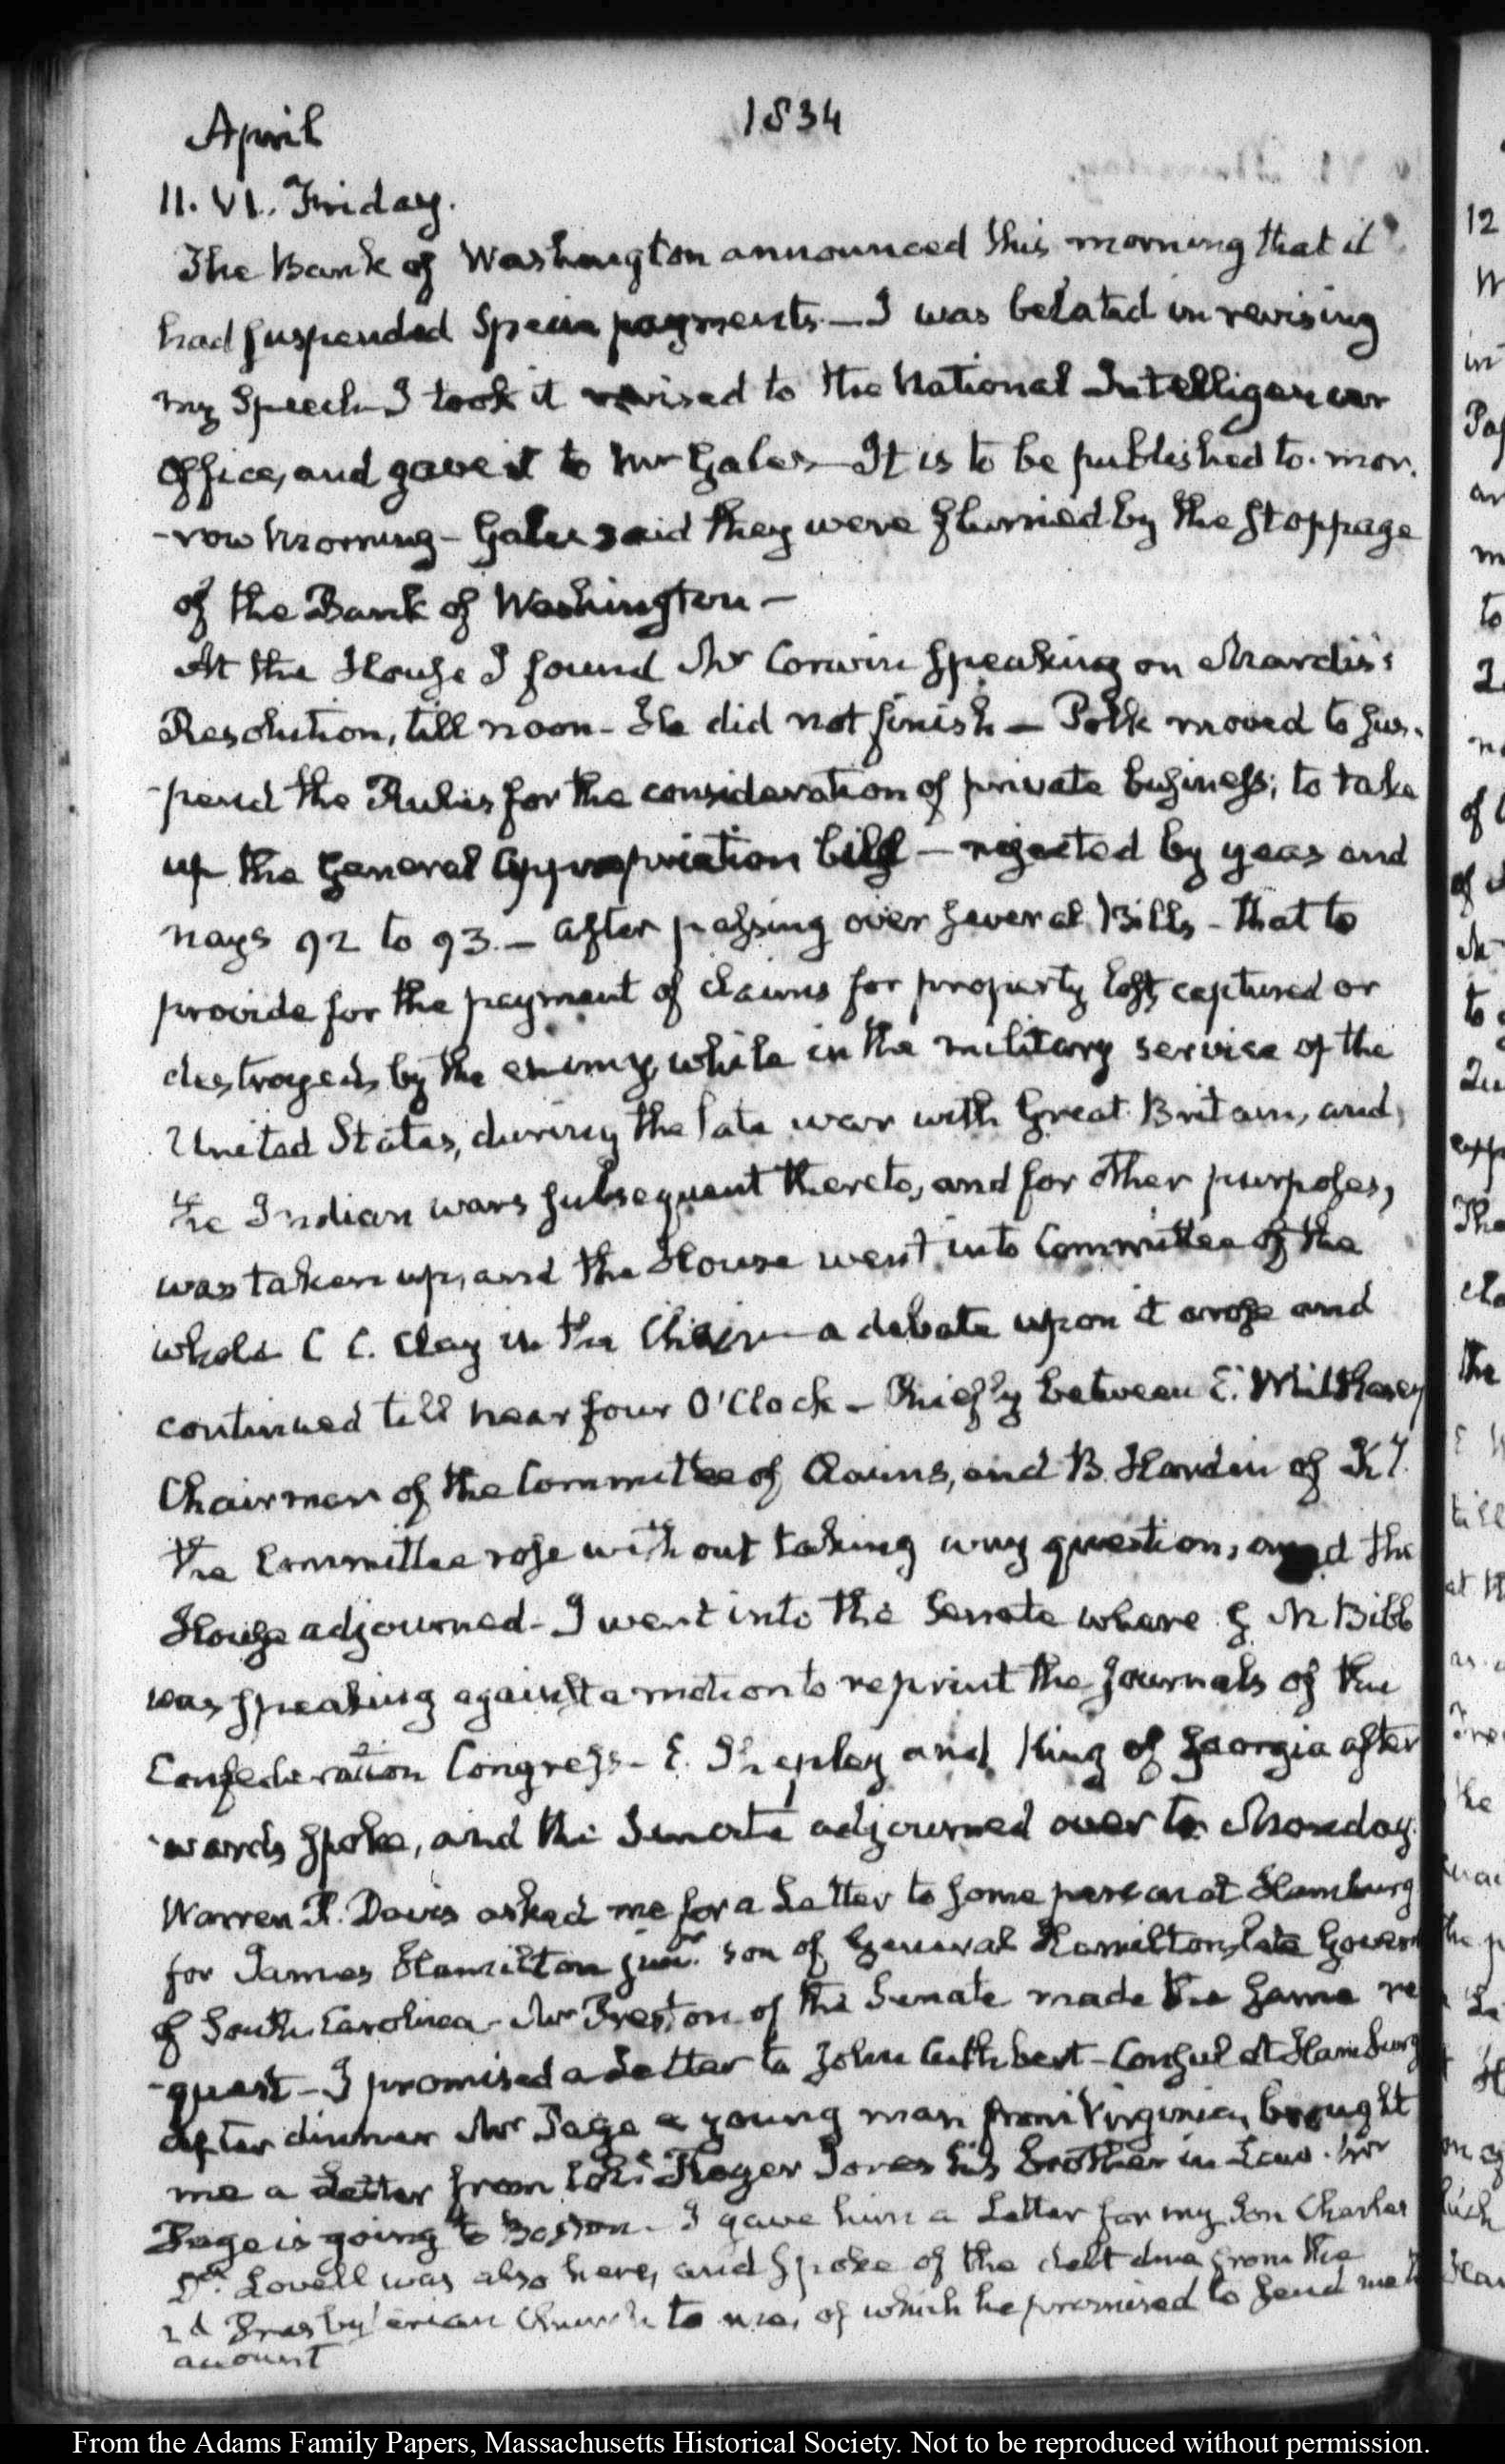 April
1834
11. VI. Friday.
The Bank of Washington announced this morning that it
had suspended Specie payments — I was belated in revising
my Speech — I took it revised to the National Intelligencer
Office, and gave it to Mr Gales — It is to be published to-mor-
-row morning — Gales said they were flurried by the stoppage
of the Bank of Washington —
At the House I found Mr Corwin speaking on Mardis's
Resolution, till noon — He did not finish — Polk moved to sus-
-pend the Rules for the consideration of private business; to take
up the General Appropriation bill — rejected by yeas and
nays 92 to 93. — After passing over several Bills — that to
provide for the payment of claims for property lost, captured or
destroyed by the enemy, while in the military service of the
United States, during the late war with Great Britain, and
the Indian wars subsequent thereto, and for other purposes,
was taken up, and the House went into Committee of the
whole C C. Clay in the Chair — a debate upon it arose and
continued till near four O'Clock — Chiefly between E. Whittlesey
Chairman of the Committee of Claims, and B. Hardin of Ky.
the Committee rose without taking any question, and the
House adjourned — I went into the Senate where G M Bibb
was speaking against a motion to reprint the Journals of the
Confederation Congress — E. Shepley and King of Georgia after
wards spoke, and the Senate adjourned over to Monday.
Warren R. Davis asked me for a Letter to some person at Hamburg
for James Hamilton junr. son of General Hamilton, late Govern
of South Carolina — Mr Preston of the Senate made the same re
-quest — I promised a Letter to John Cuthbert — Consul at Hamburg
After dinner Mr Page a young man from Virginia, brought
me a Letter from Roger Jones his brother in Law. Mr
Page is going to Boston — I gave him a Letter for my Son Charles
Dr. Lovell was also here, and spoke of the debt due from the
2d Presbyterian Church to me, of which he promised to send me
account
12
From the Adams Family Papers, Massachusetts Historical Society. Not to be reproduced without permission.